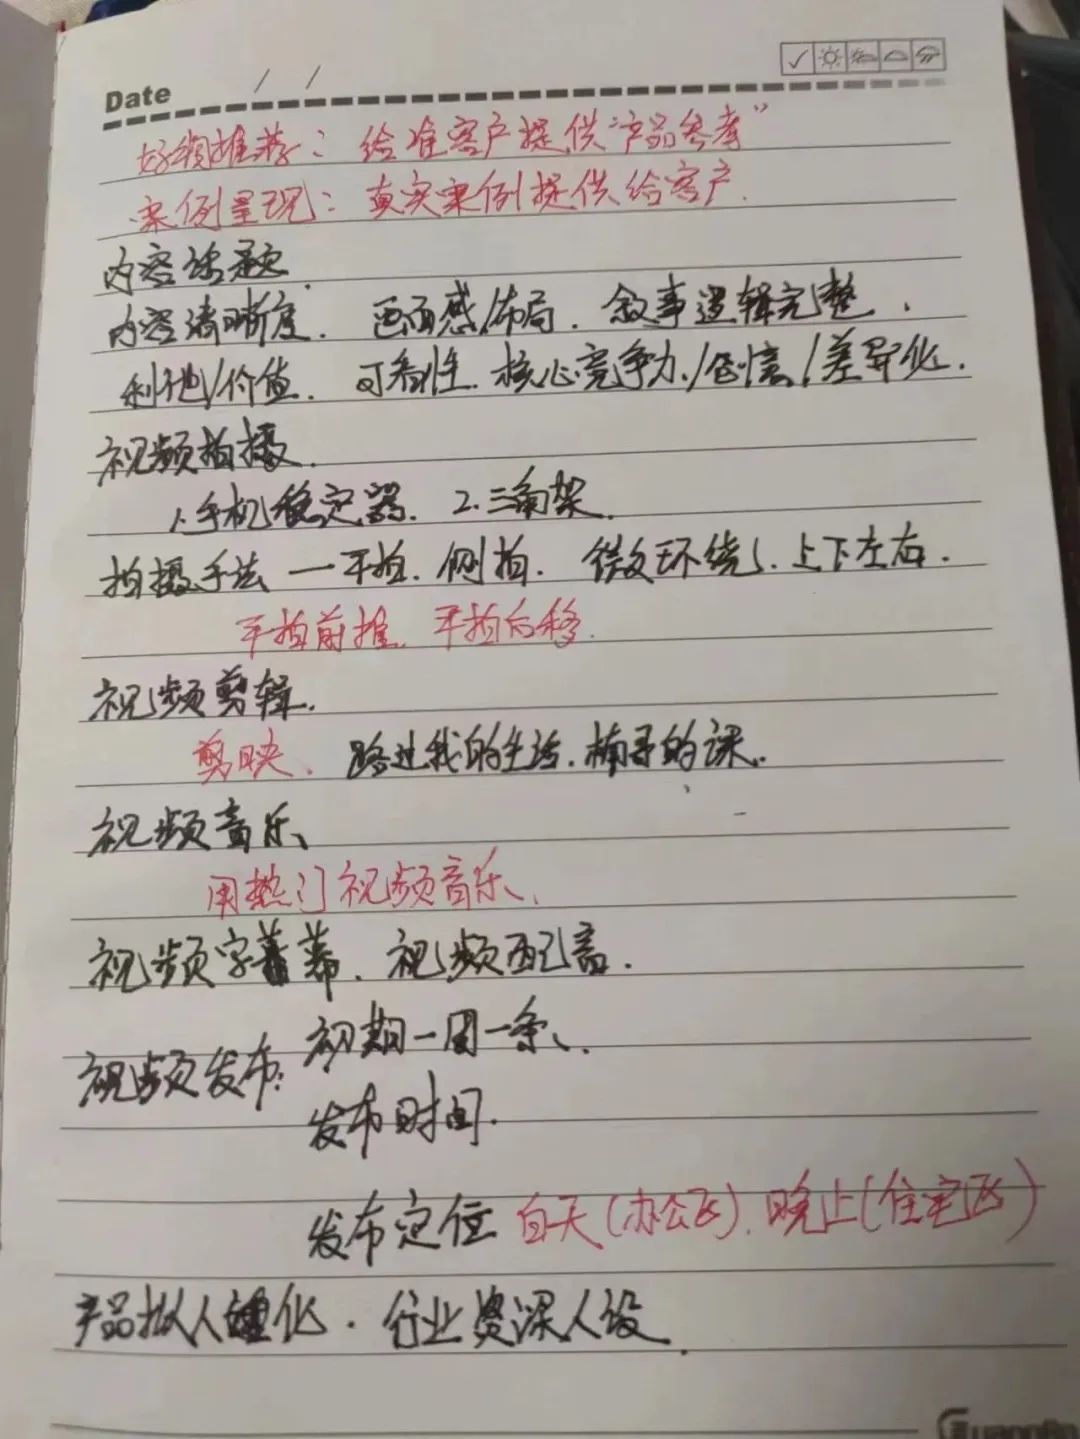 Date / /
好物推荐：给准客户提供“产品参考”
案例呈现：真实案例提供给客户.
内容话题.
内容清晰度. 画面感/布局. 叙事逻辑完整.
利他/价值. 可看性. 核心竞争力/创意/差异化.
视频拍摄.
1.手机稳定器. 2.三角架.
拍摄手法 — 平拍. 侧拍. 微环绕. 上下左右.
平拍前推. 平拍后移.
视频剪辑.
剪映、路过我的生活.楠哥的课.
视频音乐、
用热门视频音乐、
视频字幕. 视频配音.
视频发布: 初期一周一条、
发布时间.
发布定位 白天(办公区). 晚上(住宅区)
产品拟人化. 行业资深人设.